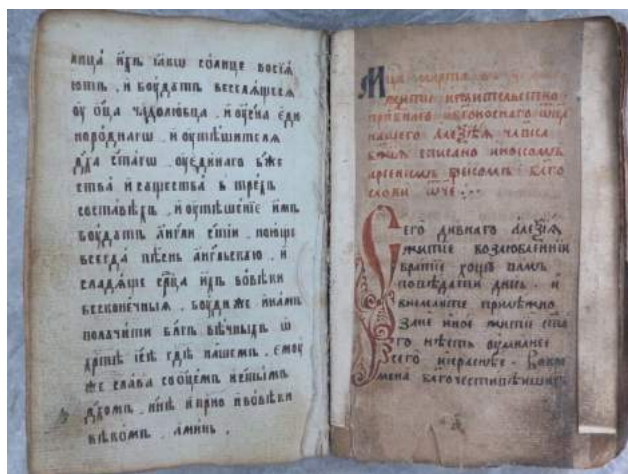 лица их яко солнце восия
ют, и боудатъ веселящеся
оу оца чадолюбца, и оу сна едї
нороднаго, и оутѣшится
дха стаго, оу единаго бже
ства и существа в трех
составѣхъ, и оутѣшение имъ
боудатъ англи стїи, поюще
всегда пѣснь англьскаю, и
сладяще срца их во вѣки
бесконечныя, боуди же и намъ
полачити благъ вѣчныхъ ѡ
хртѣ ісѣ гдѣ нашемъ, емоу
же слава со оцемъ и стымъ
дхомъ, ннѣ и прно и во вѣки
вѣкомъ, аминь.
Мца марта в
житие и жительство
преп и бгоноснаго ѡца
нашего алеѯїа члвка
бжїя списано иноссомъ
арсениемъ бло
слови ѡче
Сего дивнаго алеѯїа
житие возлюбленнїи
братие хощу вамъ
повѣдати днсь. и
внимаите прилѣжно
зане иное житїе ста
го нѣсть оумилнее
сего и краснѣе. Во вре
мена благочестивѣишихъ